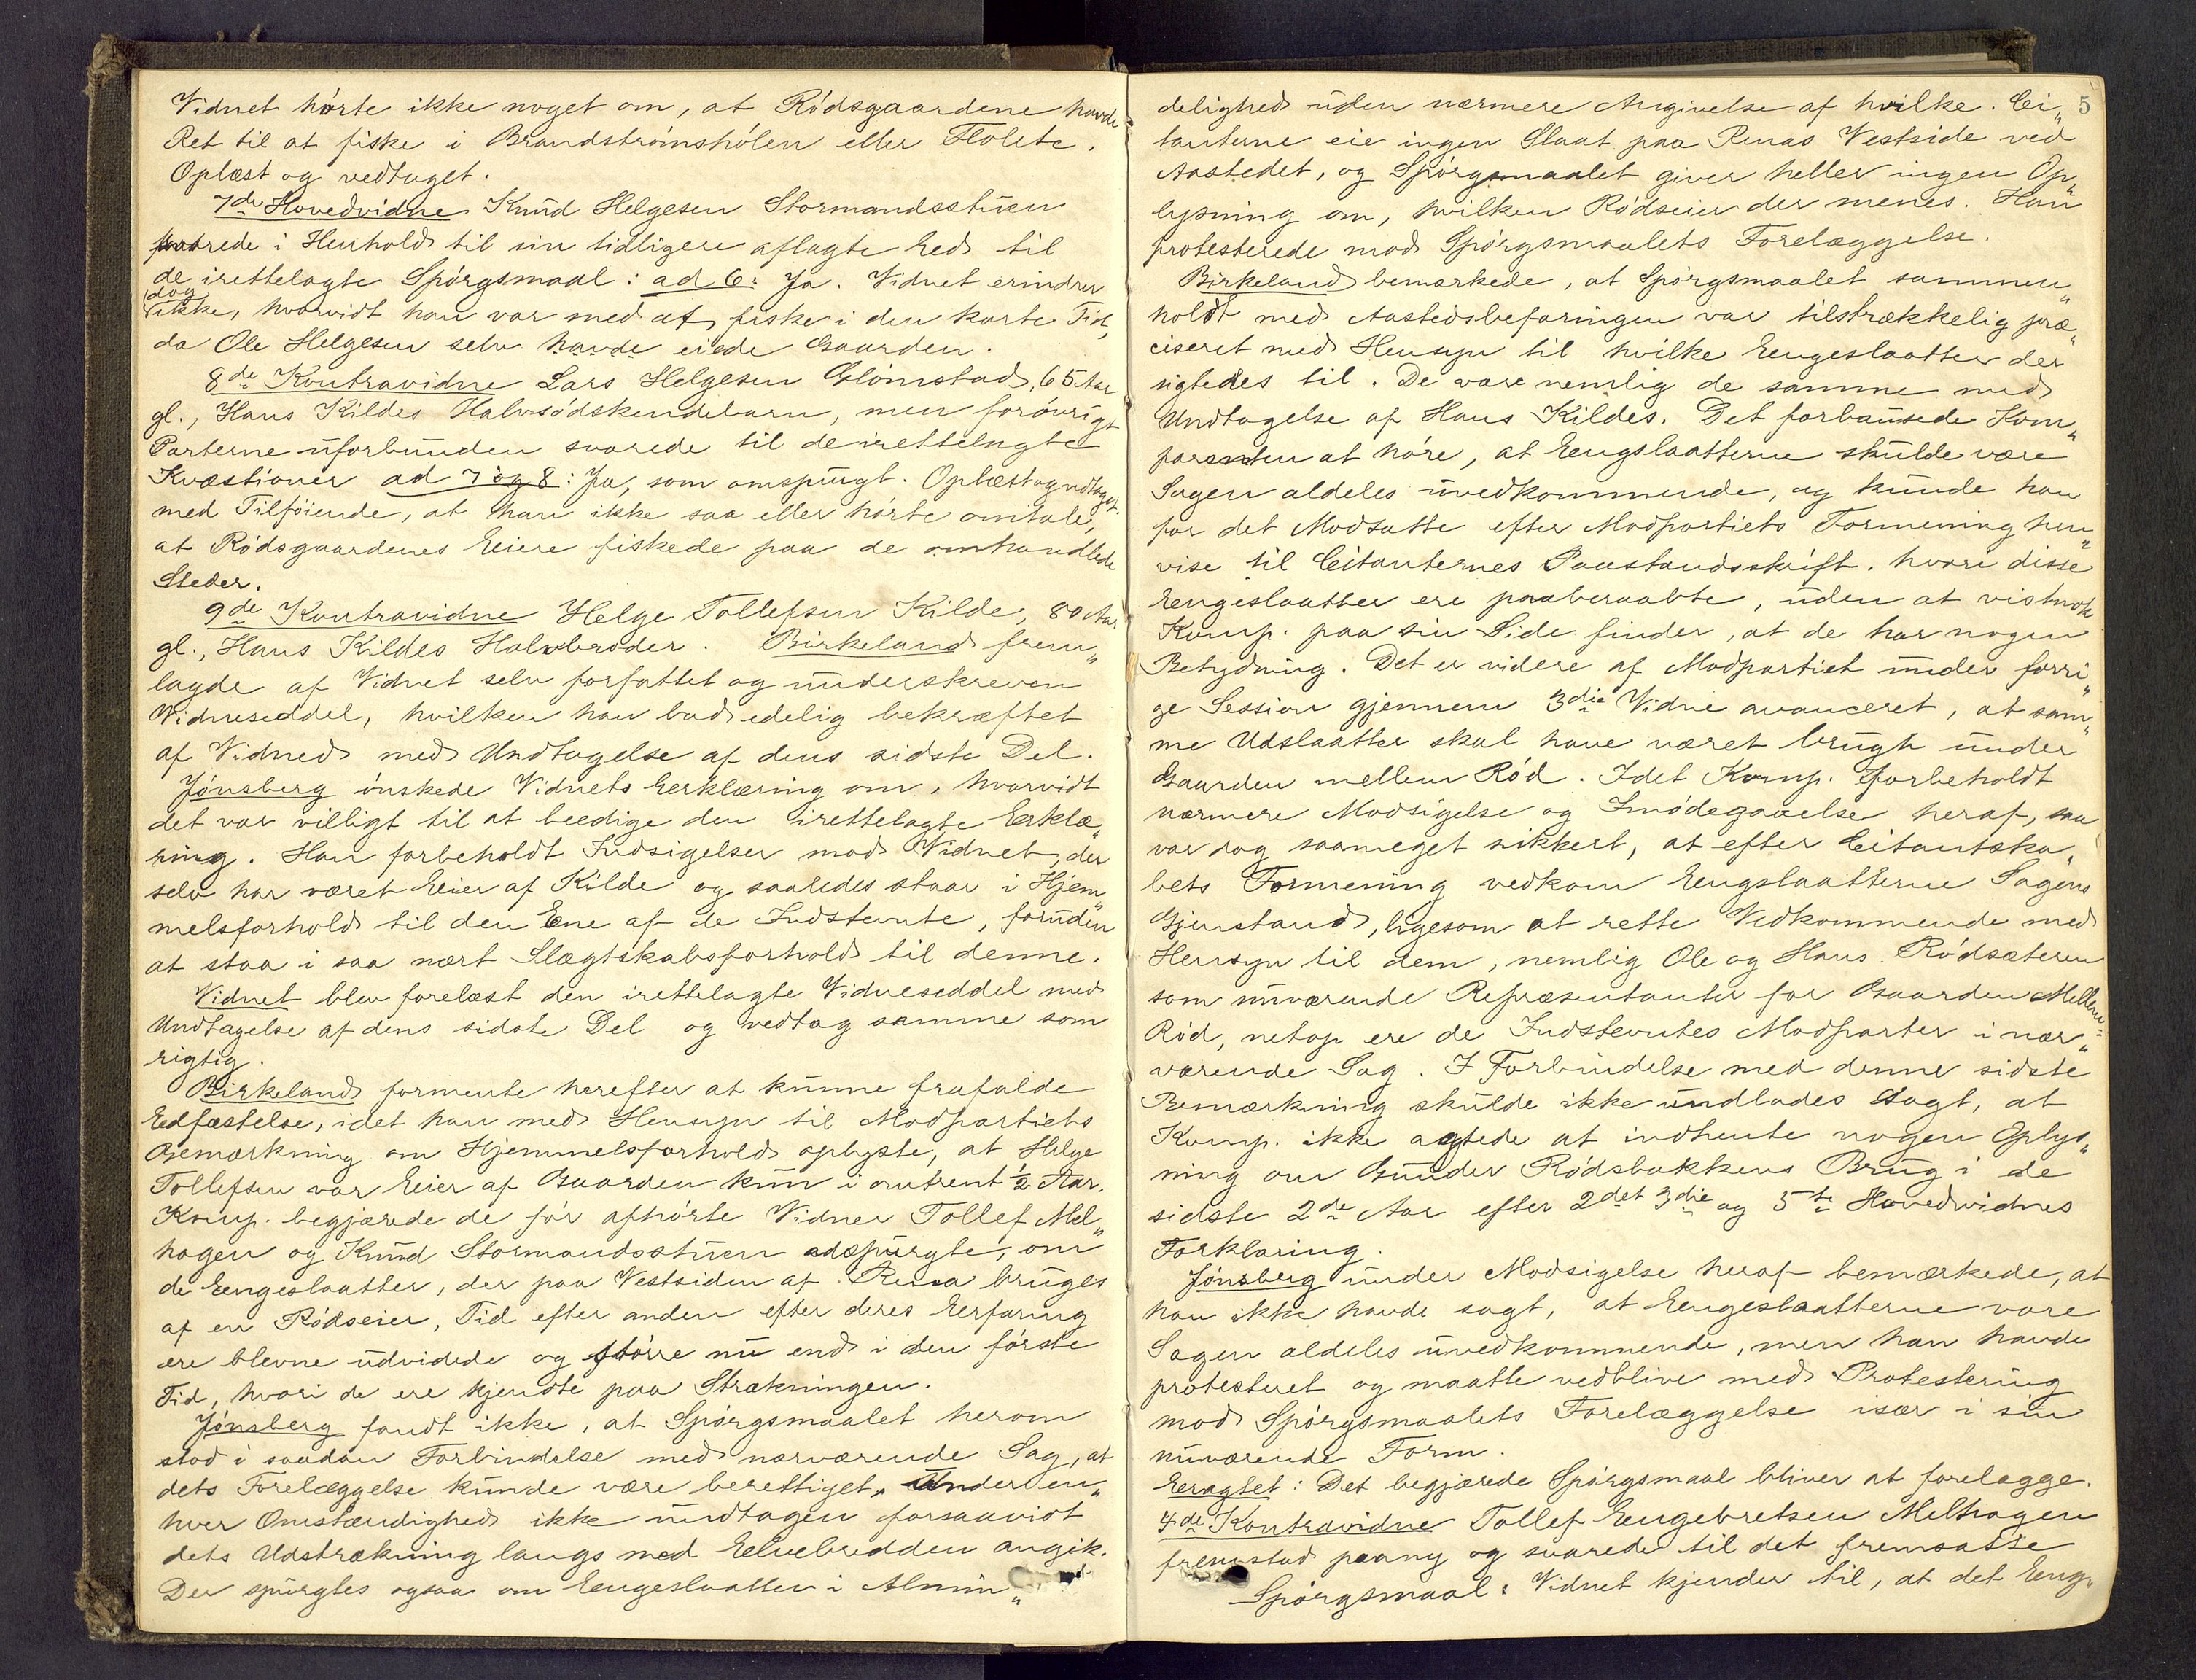 Vidnet hørte ikke noget om, at Rødsgaardene havde
Ret til at fiske i Brandstrømshølen eller Flolete.
Oplæst og vedtaget.
7de Hovedvidne Knud Helgesen Stormandsstuen
svarede i Henhold til sin tidligere aflagte Eed til
de irettelagte Spørgsmaal: ad 6: Ja. Vidnet erindrer
dog
ikke, hvorvidt han var med at fiske i den korte Tid,
da Ole Helgesen selv havde eiede Gaarden.
8de Kontravidne Lars Helgesen Glømstad, 65 Aar
gl., Hans Kildes Halvsødskendebarn, men forøvrigt
Parterne uforbunden svarede til de irettelagte
Kvæstioner ad 7 og 8: Ja, som omspurgt. Oplæst og vedtaget
med Tilføiende, at han ikke saa eller hørte omtale,
at Rødsgaardenes Eiere fiskede paa de omhandlede
Steder.
9de Kontravidne Helge Tollefsen Kilde, 80 Aar
gl., Hans Kildes Halvbroder. Birkeland frem„
lagde af Vidnet selv forfattet og underskreven
Vidneseddel, hvilken han bad edelig bekræftet
af Vidned med Undtagelse af dens sidste Del.
Jønsberg ønskede Vidnets Eerklæring om, hvorvidt
det var villigt til at beedige den irettelagte Erklæ„
ring. Han forbeholdt Indsigelser mod Vidnet, der
selv har været Eeier af Kilde og saaledes staar i Hjem„
melsforhold til den Ene af de Indstevnte, foruden
at staa i saa nært Slægtskabsforhold til denne.
Vidnet blev forelæst den irettelagte Vidneseddel med
Undtagelse af dens sidste Del og vedtog samme som
rigtig.
Birkeland formente herefter at kunne frafalde
Eedfæstelse, idet han med Hensyn til Modpartiets
Bemærkning om Hjemmelsforhold oplyste, at Helge
Tollefsen var Eeier af Gaarden kun i omtrent ½ Aar.
Komp. begjærede de før afhørte Vidner Tollef Mel„
hagen og Knud Stormandsstuen adspurgte, om
de Eengeslaatter, der paa Vestsiden af Rena bruges
af en Rødseier, Tid efter anden efter deres Eerfaring
ere blevne udvidede og større nu end i den første
Tid, hvori de ere kjendte paa Strækningen.
Jønsberg fandt ikke, at Spørgsmaalet herom
stod i saadan Forbindelse med nærværende Sag, at
dets Forelæggelse kunde være berettiget, Under en„
hver Omstændighed ikke undtagen forsaavidt
dets Udstrækning langs med Eelvebredden angik.
Der spurgtes ogsaa om Eengeslaatter i Almin„
5
delighed uden nærmere Angivelse af hvilke. Ci„
tanterne eie ingen Slaat paa Renas Vestside ved
Aastedet, og Spørgsmaalet giver heller ingen Op„
lysning om, hvilken Rødseier der menes. Han
protesterede mod Spørgsmaalets Forelæggelse.
Birkeland bemærkede, at Spørgsmaalet sammen„
holdt med Aastedsbefaringen var tilstrækkelig præ„
ciseret med Hensyn til hvilke Eengeslaatter der
sigtedes til. De vare nemlig de samme med
Undtagelse af Hans Kildes. Det forbausede Kom„
parenten at høre, at Eengslaatterne skulde være
Sagen aldeles uvedkommende, og kunde han
for det Modsatte efter Modpartiets Formening hen„
vise til Citanternes Paastandsskrift. hvori disse
Eengeslaatter ere paaberaabte, uden at vistnok
Komp. paa sin Side finder, at de har nogen
Betydning. Det er videre af Modpartiet under forri„
ge Session gjennem 3die Vidne avanceret, at sam„
me Udslaatter skal have været brugt under
Gaarden mellem Rød. Idet Komp. forbeholdt
nærmere Modsigelse og Imødegaaelse heraf, saa
var dog saameget sikkert, at efter Citantska„
bets Formening vedkom Eengslaatterne Sagens
Gjenstand, ligesom at rette Vedkommende med
Hensyn til dem, nemlig Ole og Hans Rødsæteren
som nuværende Repræsentanter for Gaarden Mellem„
Rød, netop ere de Indstevntes Modparter i nær„
værende Sag. I Forbindelse med denne sidste
Bemærkning skulde ikke undlades sagt, at
Komp. ikke agtede at indhente nogen Oplys„
ning om Gunder Rødsbakkens Brug i de
sidste 2de Aar efter 2det 3die og 5te Hovedvidnes
Forklaring.
Jønsberg under Modsigelse heraf bemærkede, at
han ikke havde sagt, at Eengeslaatterne vare
Sagen aldeles uvedkommende, men han havde
protesteret og maatte vedblive med Protestering
mod Spørgsmaalets Forelæggelse især i sin
nuværende Form.
Eeragtet: Det begjærede Spørgsmaal bliver at forelægge.
4de Kontravidne Tollef Eengebretsen Melhagen
fremstod paany og svarede til det fremsatte
Spørgsmaal: Vidnet kjender til, at det Eeng„